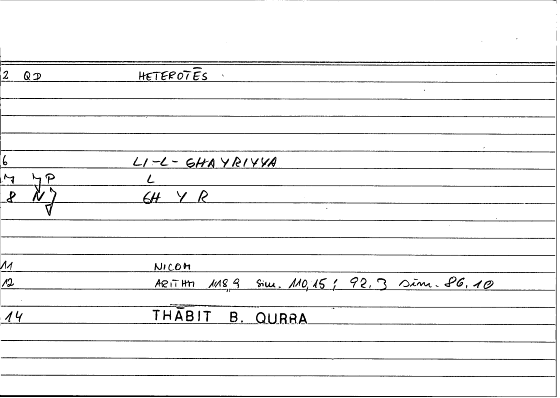 2 QD HETEROTĒS
6 LI-L-GHAYRIYYA
7 JP L
8 NJ GH Y R
11 NICOM
12 ARITHM 118,9 sim. 110,15; 92,3 sim. 86,10
14 THĀBIT B. QURRA